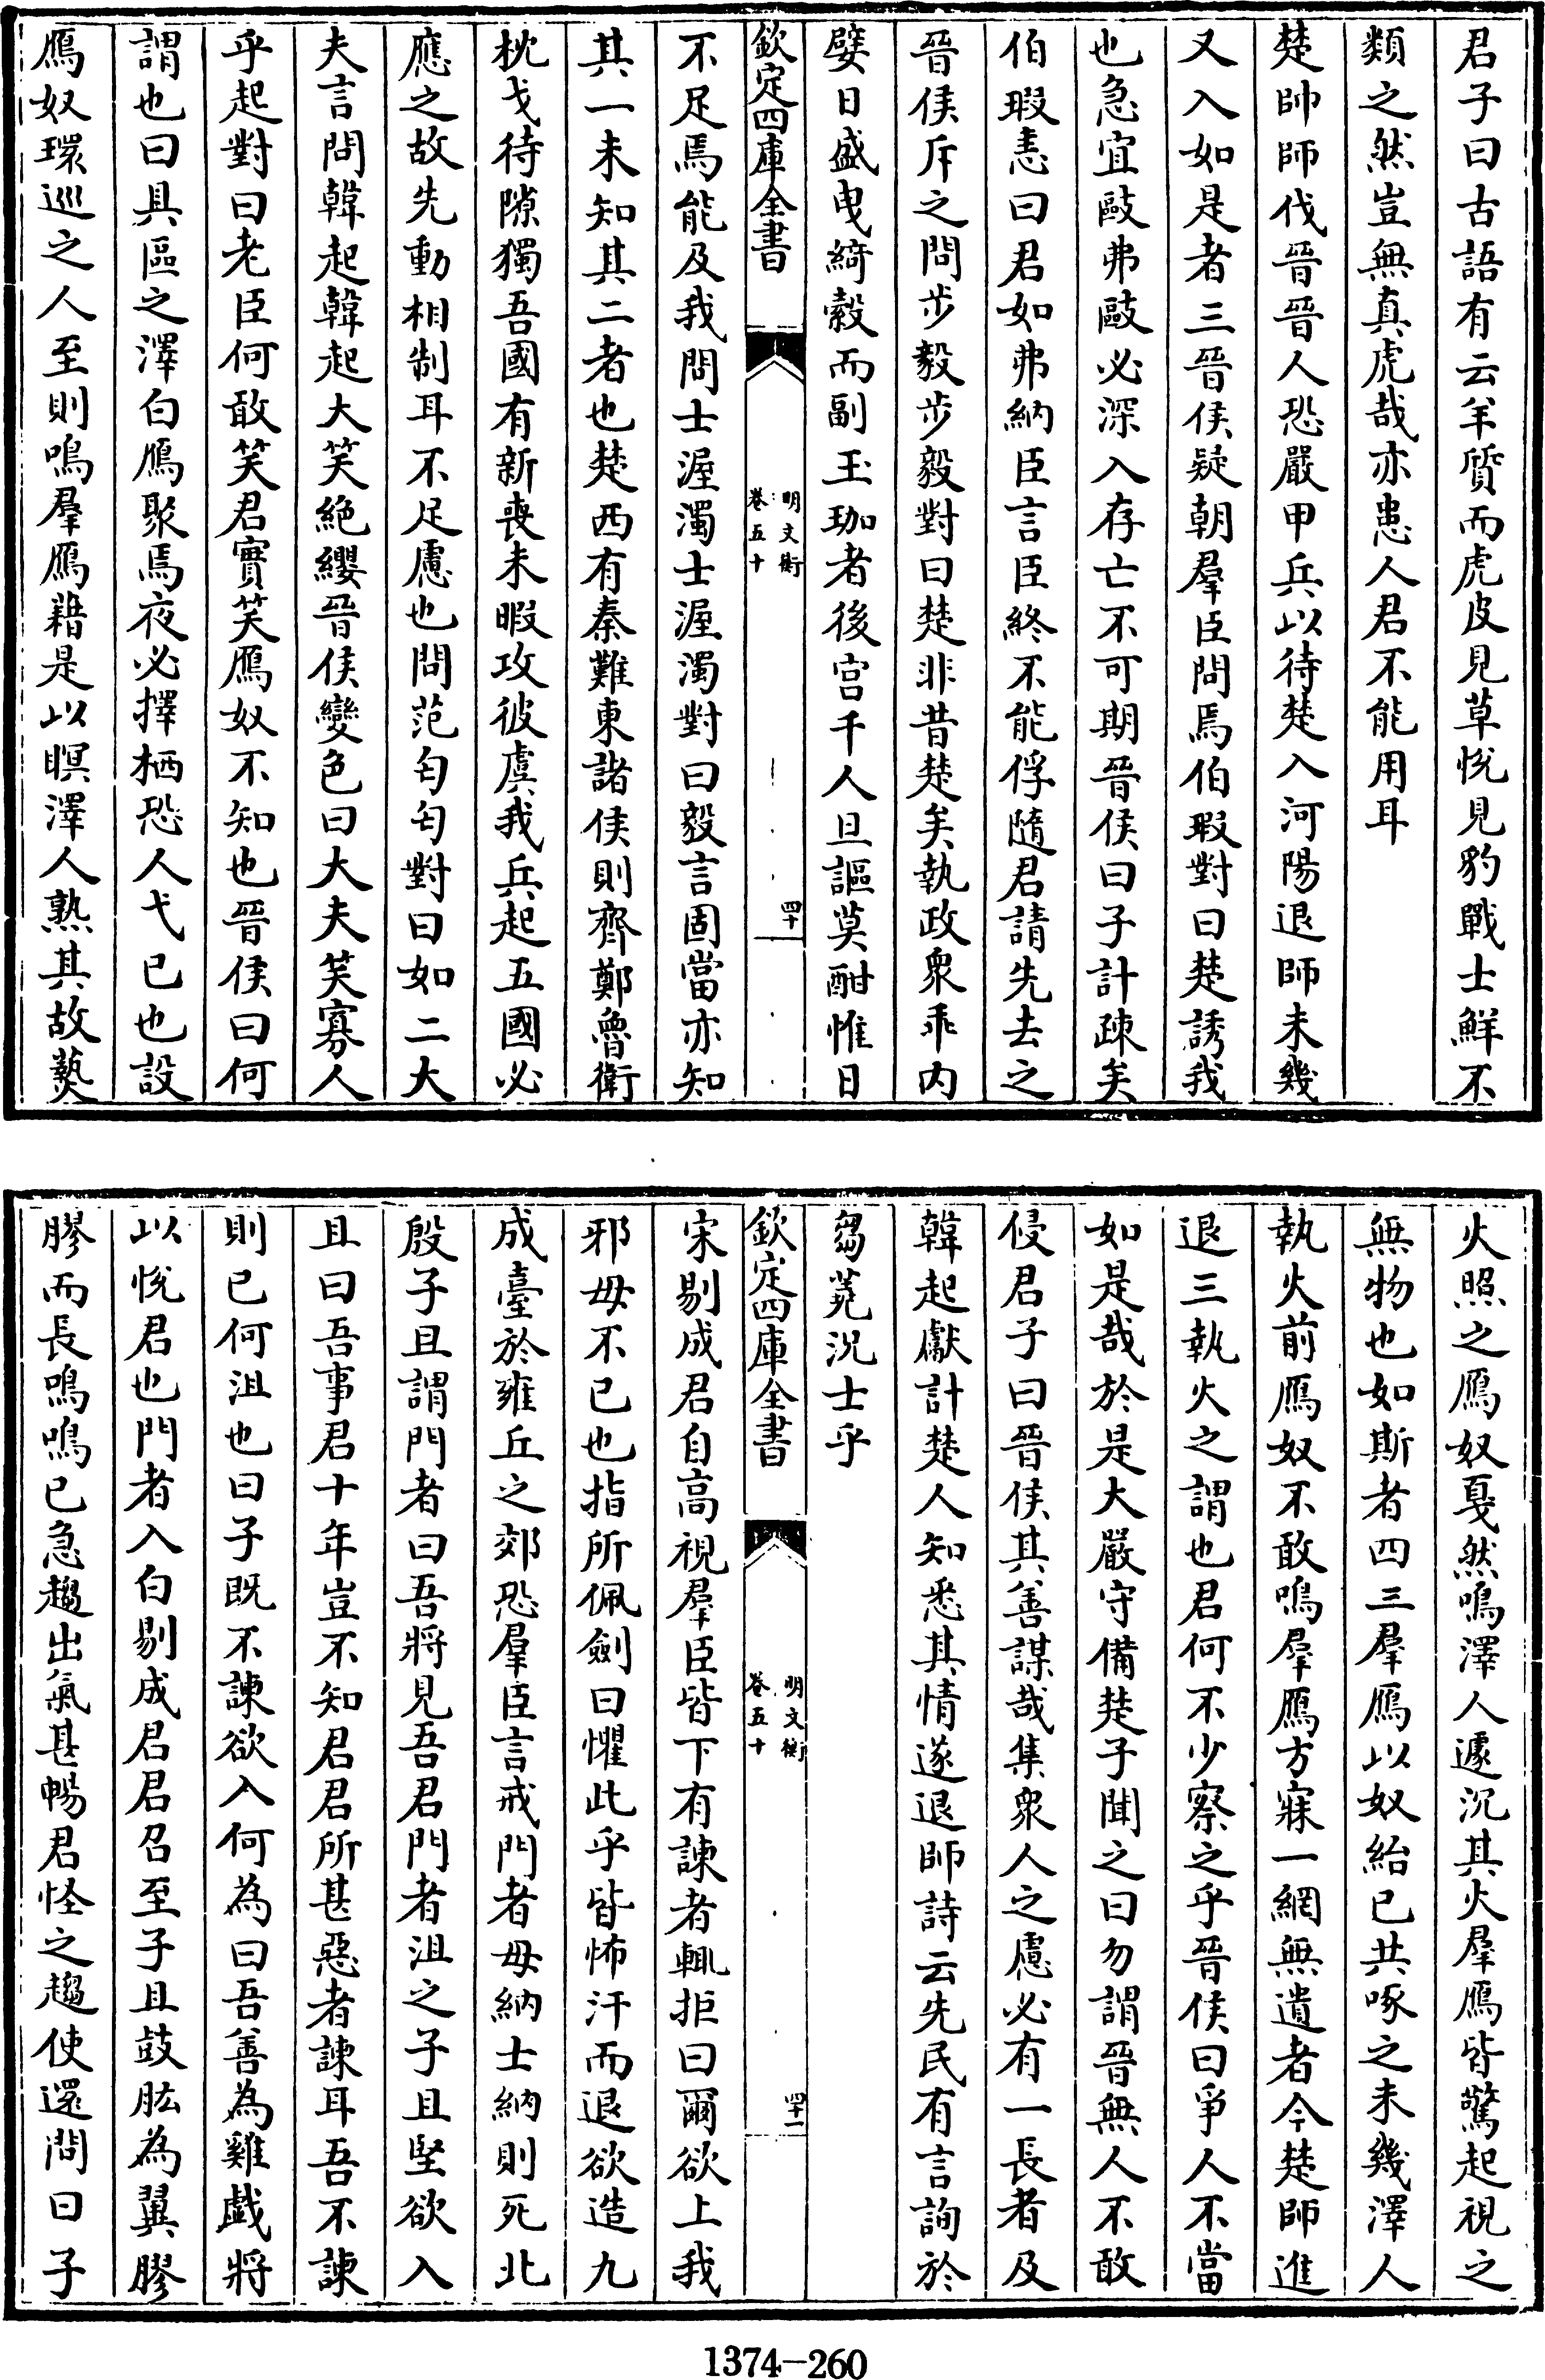 君子曰古語有云羊質而虎皮見草悅見豹戰士鮮不
類之然豈無真虎哉亦患人君不能用耳
楚帥師伐晉晉人恐嚴甲兵以待楚入河陽退師未幾
又入如是者三晉侯疑朝羣臣問焉伯瑕對曰楚誘我
也急宜敺弗敺必深入存亡不可期晉侯曰子計疎矣
伯瑕恚曰君如弗納臣言臣終不能俘隨君請先去之
晉侯斥之問步毅步毅對曰楚非昔楚矣執政衆乖内
嬖日盛曳綺縠而副玉珈者後宫千人旦謳莫酣惟日
欽定四庫全書
明文衡
卷五十
四十
不足焉能及我問士渥濁士渥濁對曰毅言固當亦知
其一未知其二者也楚西有秦難東諸侯則齊鄭魯衛
枕戈待隙獨吾國有新喪未暇攻彼虞我兵起五國必
應之故先動相制耳不足慮也問范匄匄對曰如二大
夫言問韓起韓起大笑絶纓晉侯變色曰大夫笑寡人
乎起對曰老臣何敢笑君實笑鴈奴不知也晉侯曰何
謂也曰具區之澤白鴈聚焉夜必擇栖恐人弋已也設
鴈奴環巡之人至則鳴羣鴈藉是以瞑澤人熟其故爇
火照之鴈奴戛然鳴澤人遽沉其火羣鴈皆驚起視之
無物也如斯者四三羣鴈以奴紿已共啄之未幾澤人
執火前鴈奴不敢鳴羣鴈方寐一網無遺者今楚師進
退三執火之謂也君何不少察之乎晉侯曰爭人不當
如是哉於是大嚴守備楚子聞之曰勿謂晉無人不敢
侵君子曰晉侯其善謀哉集衆人之慮必有一長者及
韓起獻計楚人知悉其情遂退師詩云先民有言詢於
芻蕘況士乎
欽定四庫全書
明文衡
卷五十
四十一
宋剔成君自高視羣臣皆下有諫者輒拒曰爾欲上我
邪毋不已也指所佩劍曰懼此乎皆怖汗而退欲造九
成臺於雍丘之郊恐羣臣言戒門者毋納士納則死北
殷子且謂門者曰吾將見吾君門者沮之子且堅欲入
且曰吾事君十年豈不知君君所甚惡者諫耳吾不諫
則已何沮也曰子既不諫欲入何為曰吾善為雞戯將
以悅君也門者入白剔成君君召至子且鼓肱為翼膠
膠而長鳴鳴已急趨出氣甚暢君怪之趨使還問曰子
1374-260